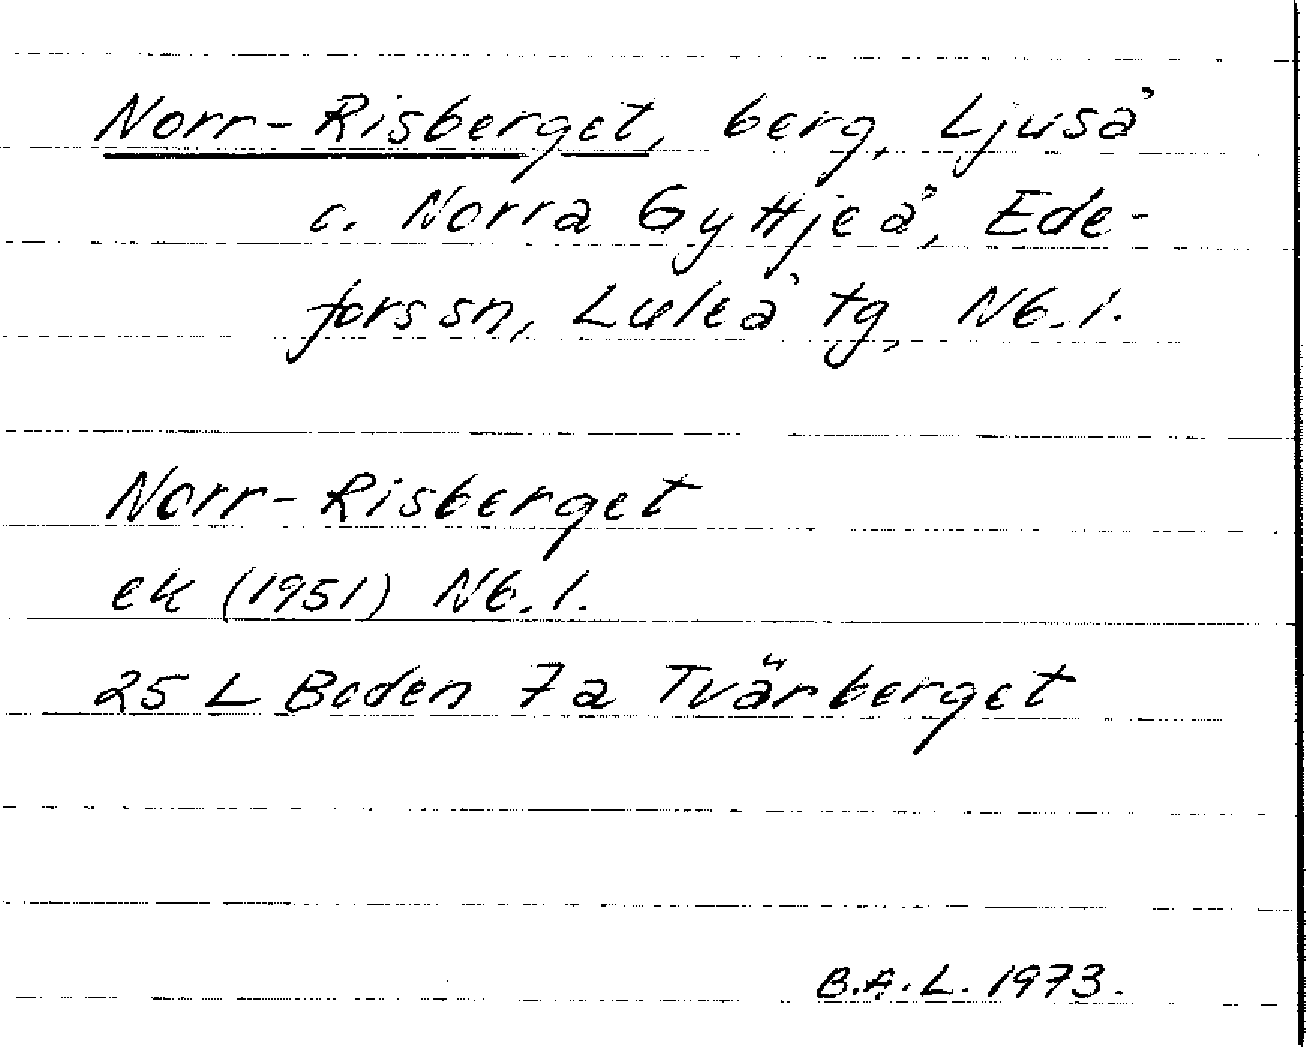 Norr-Risberget, berg, Ljuså
o. Norra Gyttjeå, Ede-
fors sn, Luleå tg, Nb.l.
Norr-Risberget
ek (1951) Nb.l.
25 L Boden 7a Tvärberget
B.A.L. 1973.